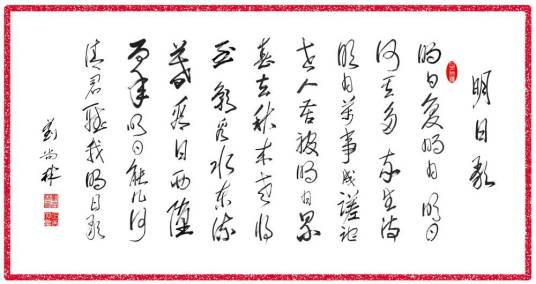 明日歌
明日復明日明日
何其多我生待
明日萬事成蹉跎
世人苦被明日累
春去秋来老将
至朝看水东流
暮看日西墜
百年明日能几何
请君聽我明日歌